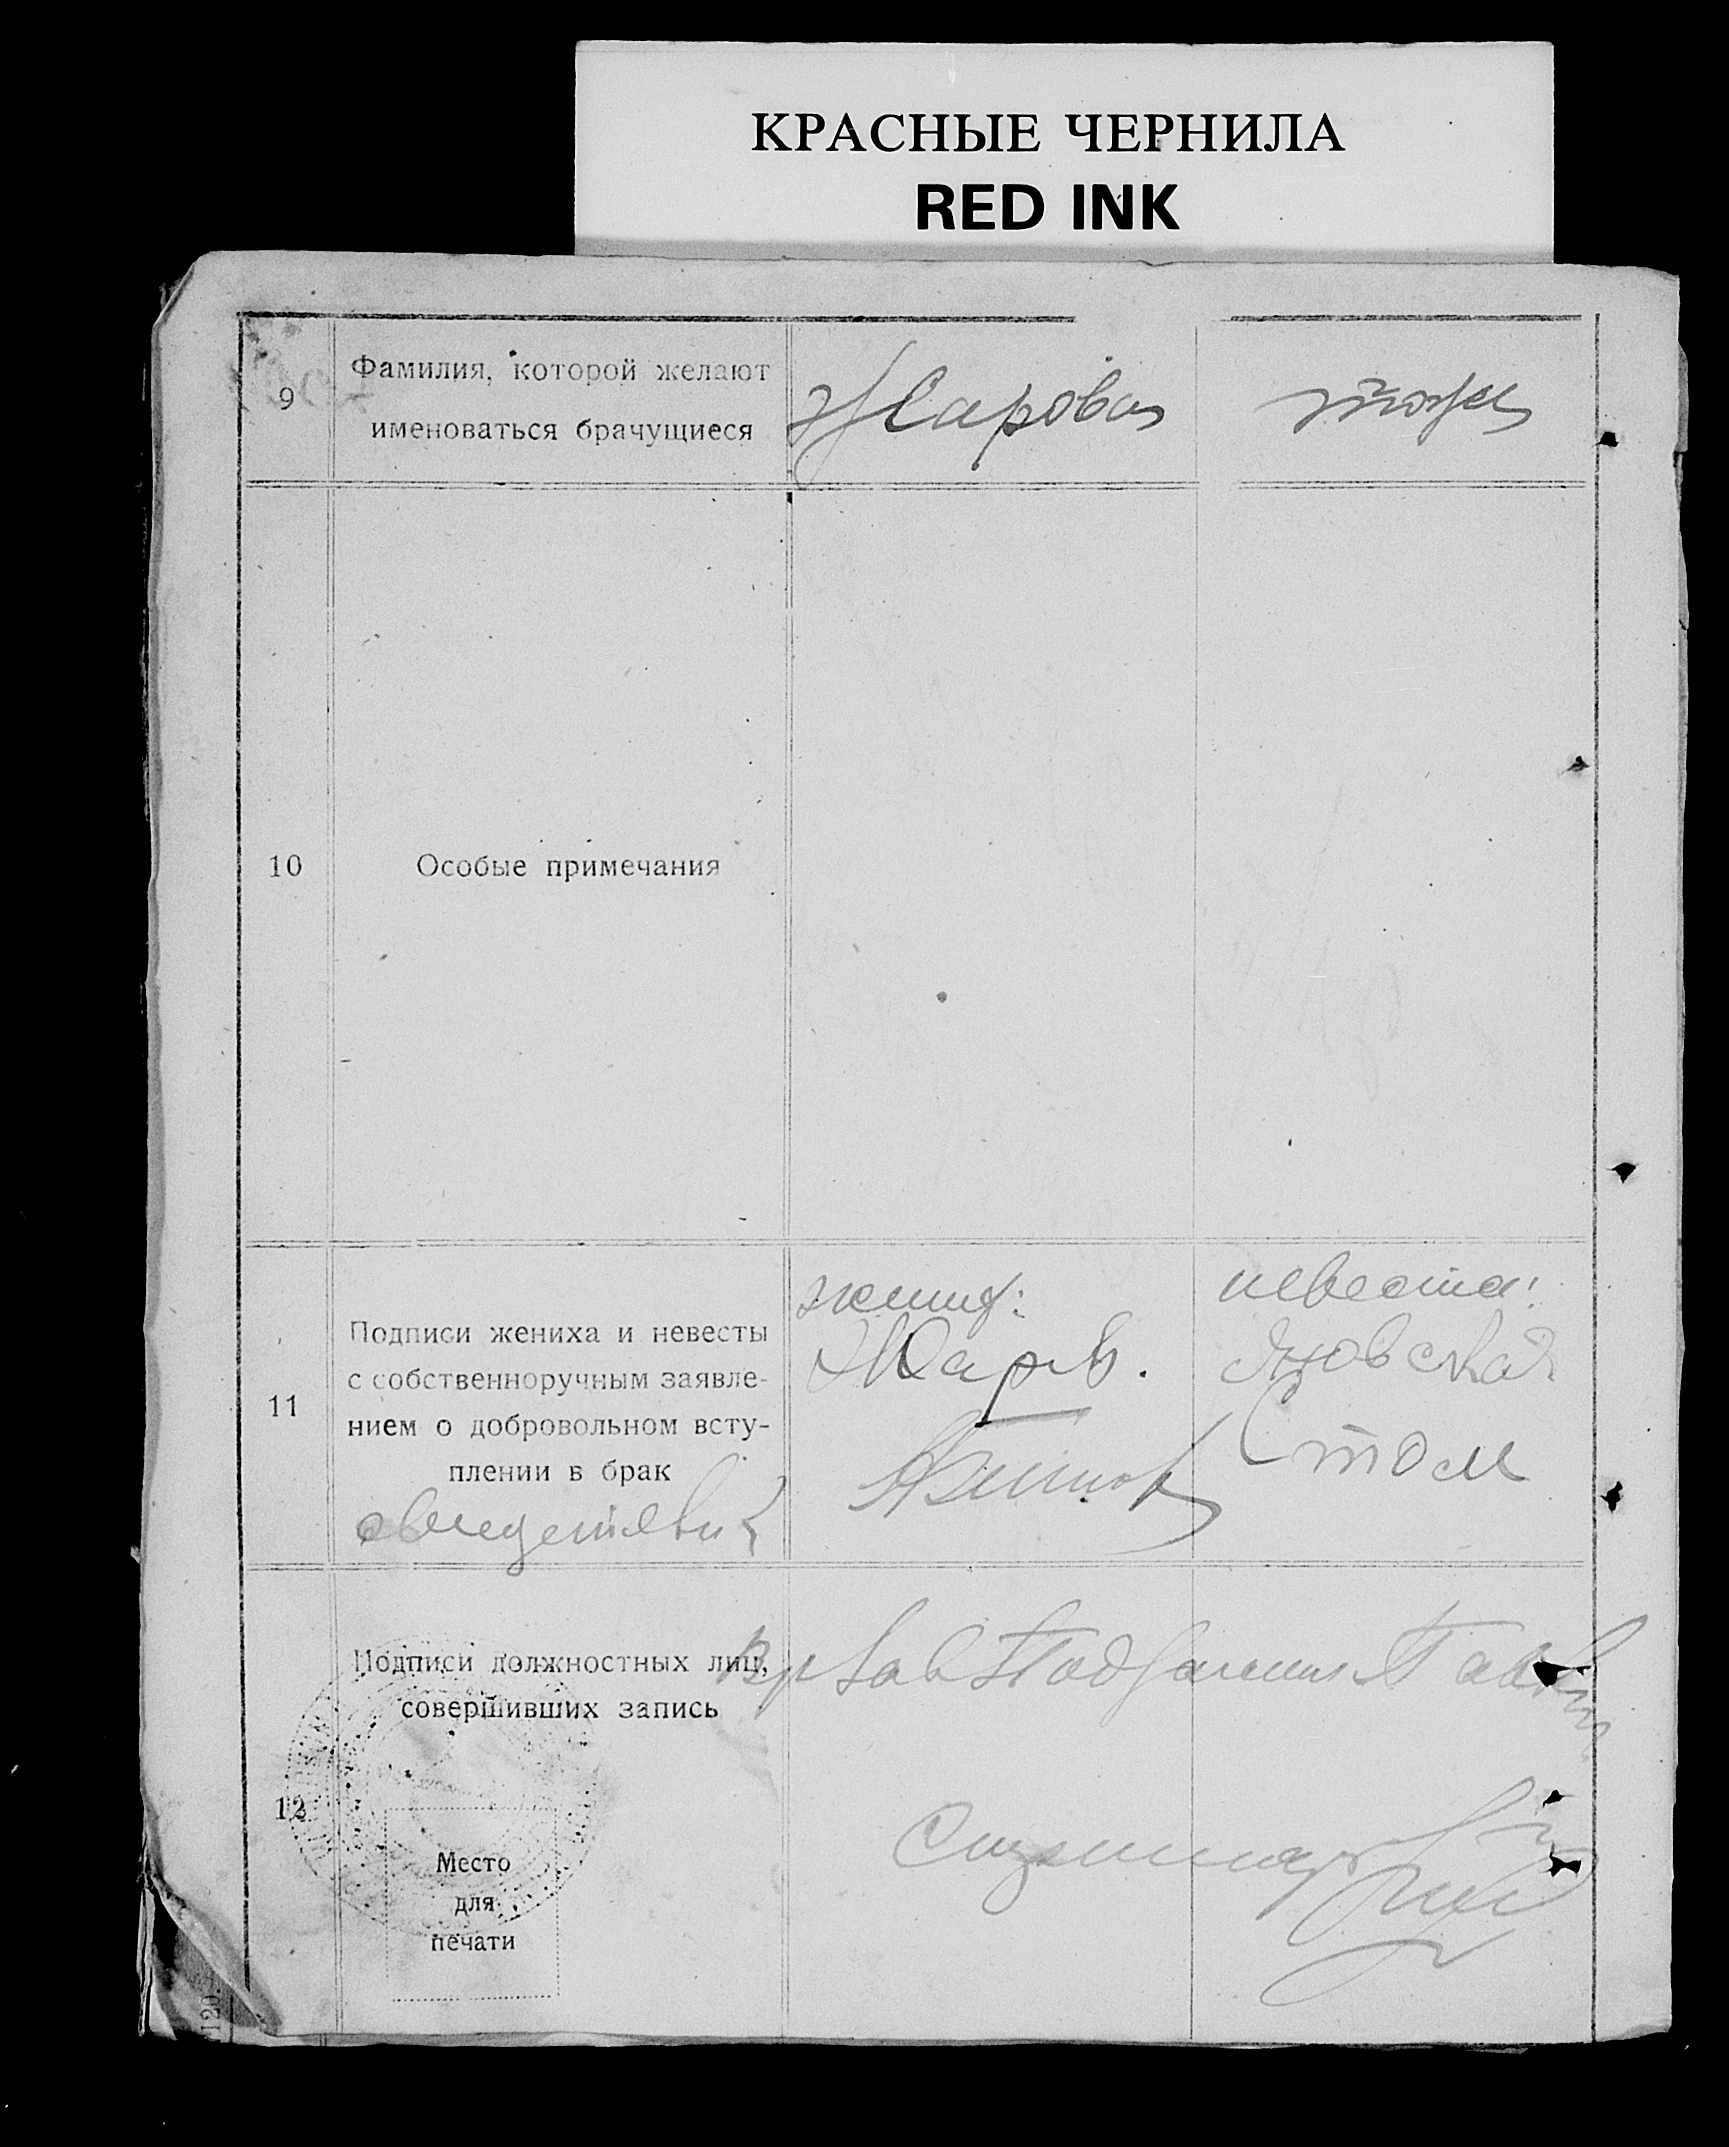 КРАСНЫЕ ЧЕРНИЛА
RED INK
9
Фамилия, которой желают
именоваться брачущиеся
Жарова
тоже
10
Особые примечания
11
Подписи жениха и невесты
с собственноручным заявле-
нием о добровольном всту-
плении в брак
свидетели
жених:
Жаров.
невеста:
Яновская
12
Подписи должностных лиц,
совершивших запись
Место
для
печати
120.